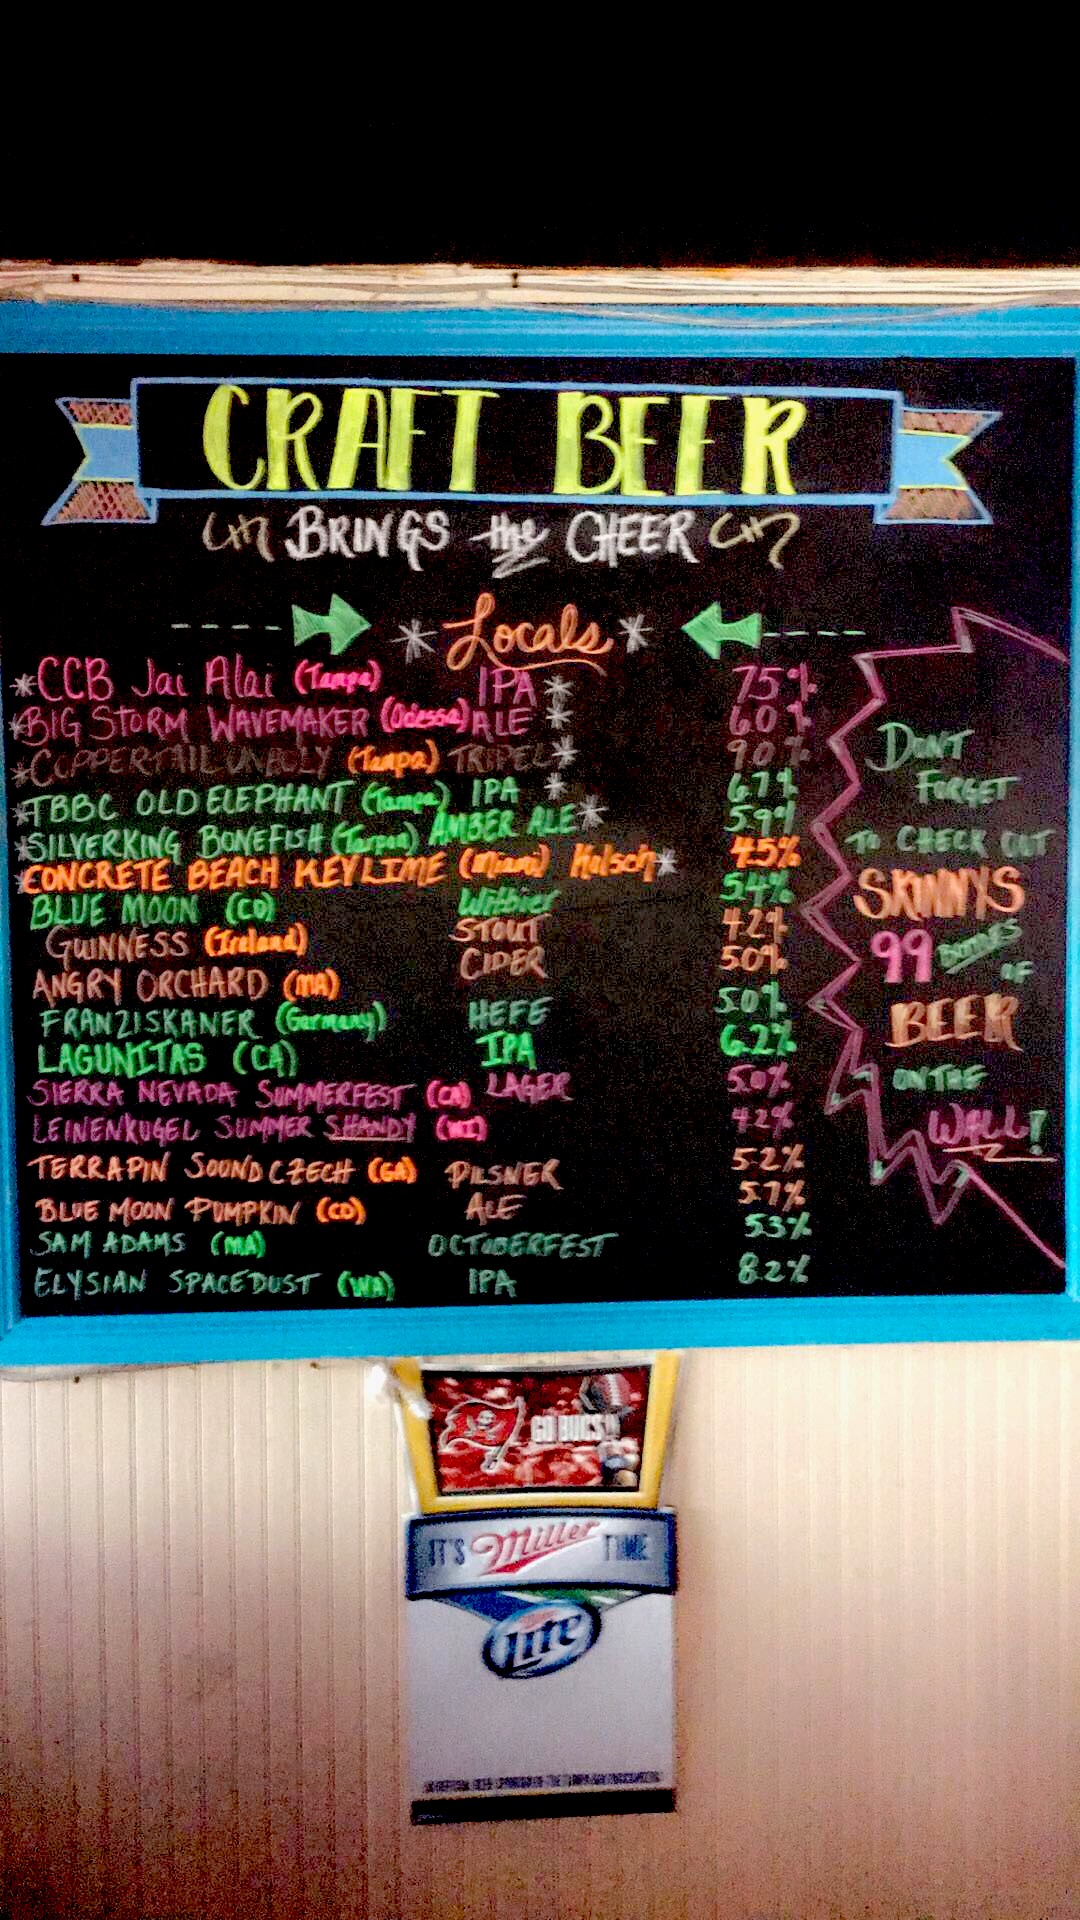 CRAFT BEER
BRINGS the CHEER
* Locals *
*CCB Jai Alai (Tampa) IPA * 7.5%
*BIG STORM WAVEMAKER (Odessa) ALE * 6.0%
*COPPERTAIL UNHOLY (Tampa) TRIPEL * 9.0%
*TBBC OLD ELEPHANT (Tampa) IPA * 6.7%
*SILVERKING BONEFISH (Tarpon) AMBER ALE * 5.9%
*CONCRETE BEACH KEYLIME (Miami) Kolsch * 4.5%
BLUE MOON (CO) Witbier 5.4%
GUINNESS (Ireland) STOUT 4.2%
ANGRY ORCHARD (MA) CIDER 5.0%
FRANZISKANER (Germany) HEFE 5.0%
LAGUNITAS (CA) IPA 6.2%
SIERRA NEVADA SUMMERFEST (CA) LAGER 5.0%
LEINENKUGEL SUMMER SHANDY (WI) 4.2%
TERRAPIN SOUND CZECH (GA) PILSNER 5.2%
BLUE MOON PUMPKIN (CO) ALE 5.7%
SAM ADAMS (MA) OCTOBERFEST 5.3%
ELYSIAN SPACEDUST (WA) IPA 8.2%
DONT
FORGET
TO CHECK OUT
SKINNYS
99 BOTTLES
OF
BEER
ON THE
WALL!
GO BUCS!!
IT'S Miller TIME
Lite